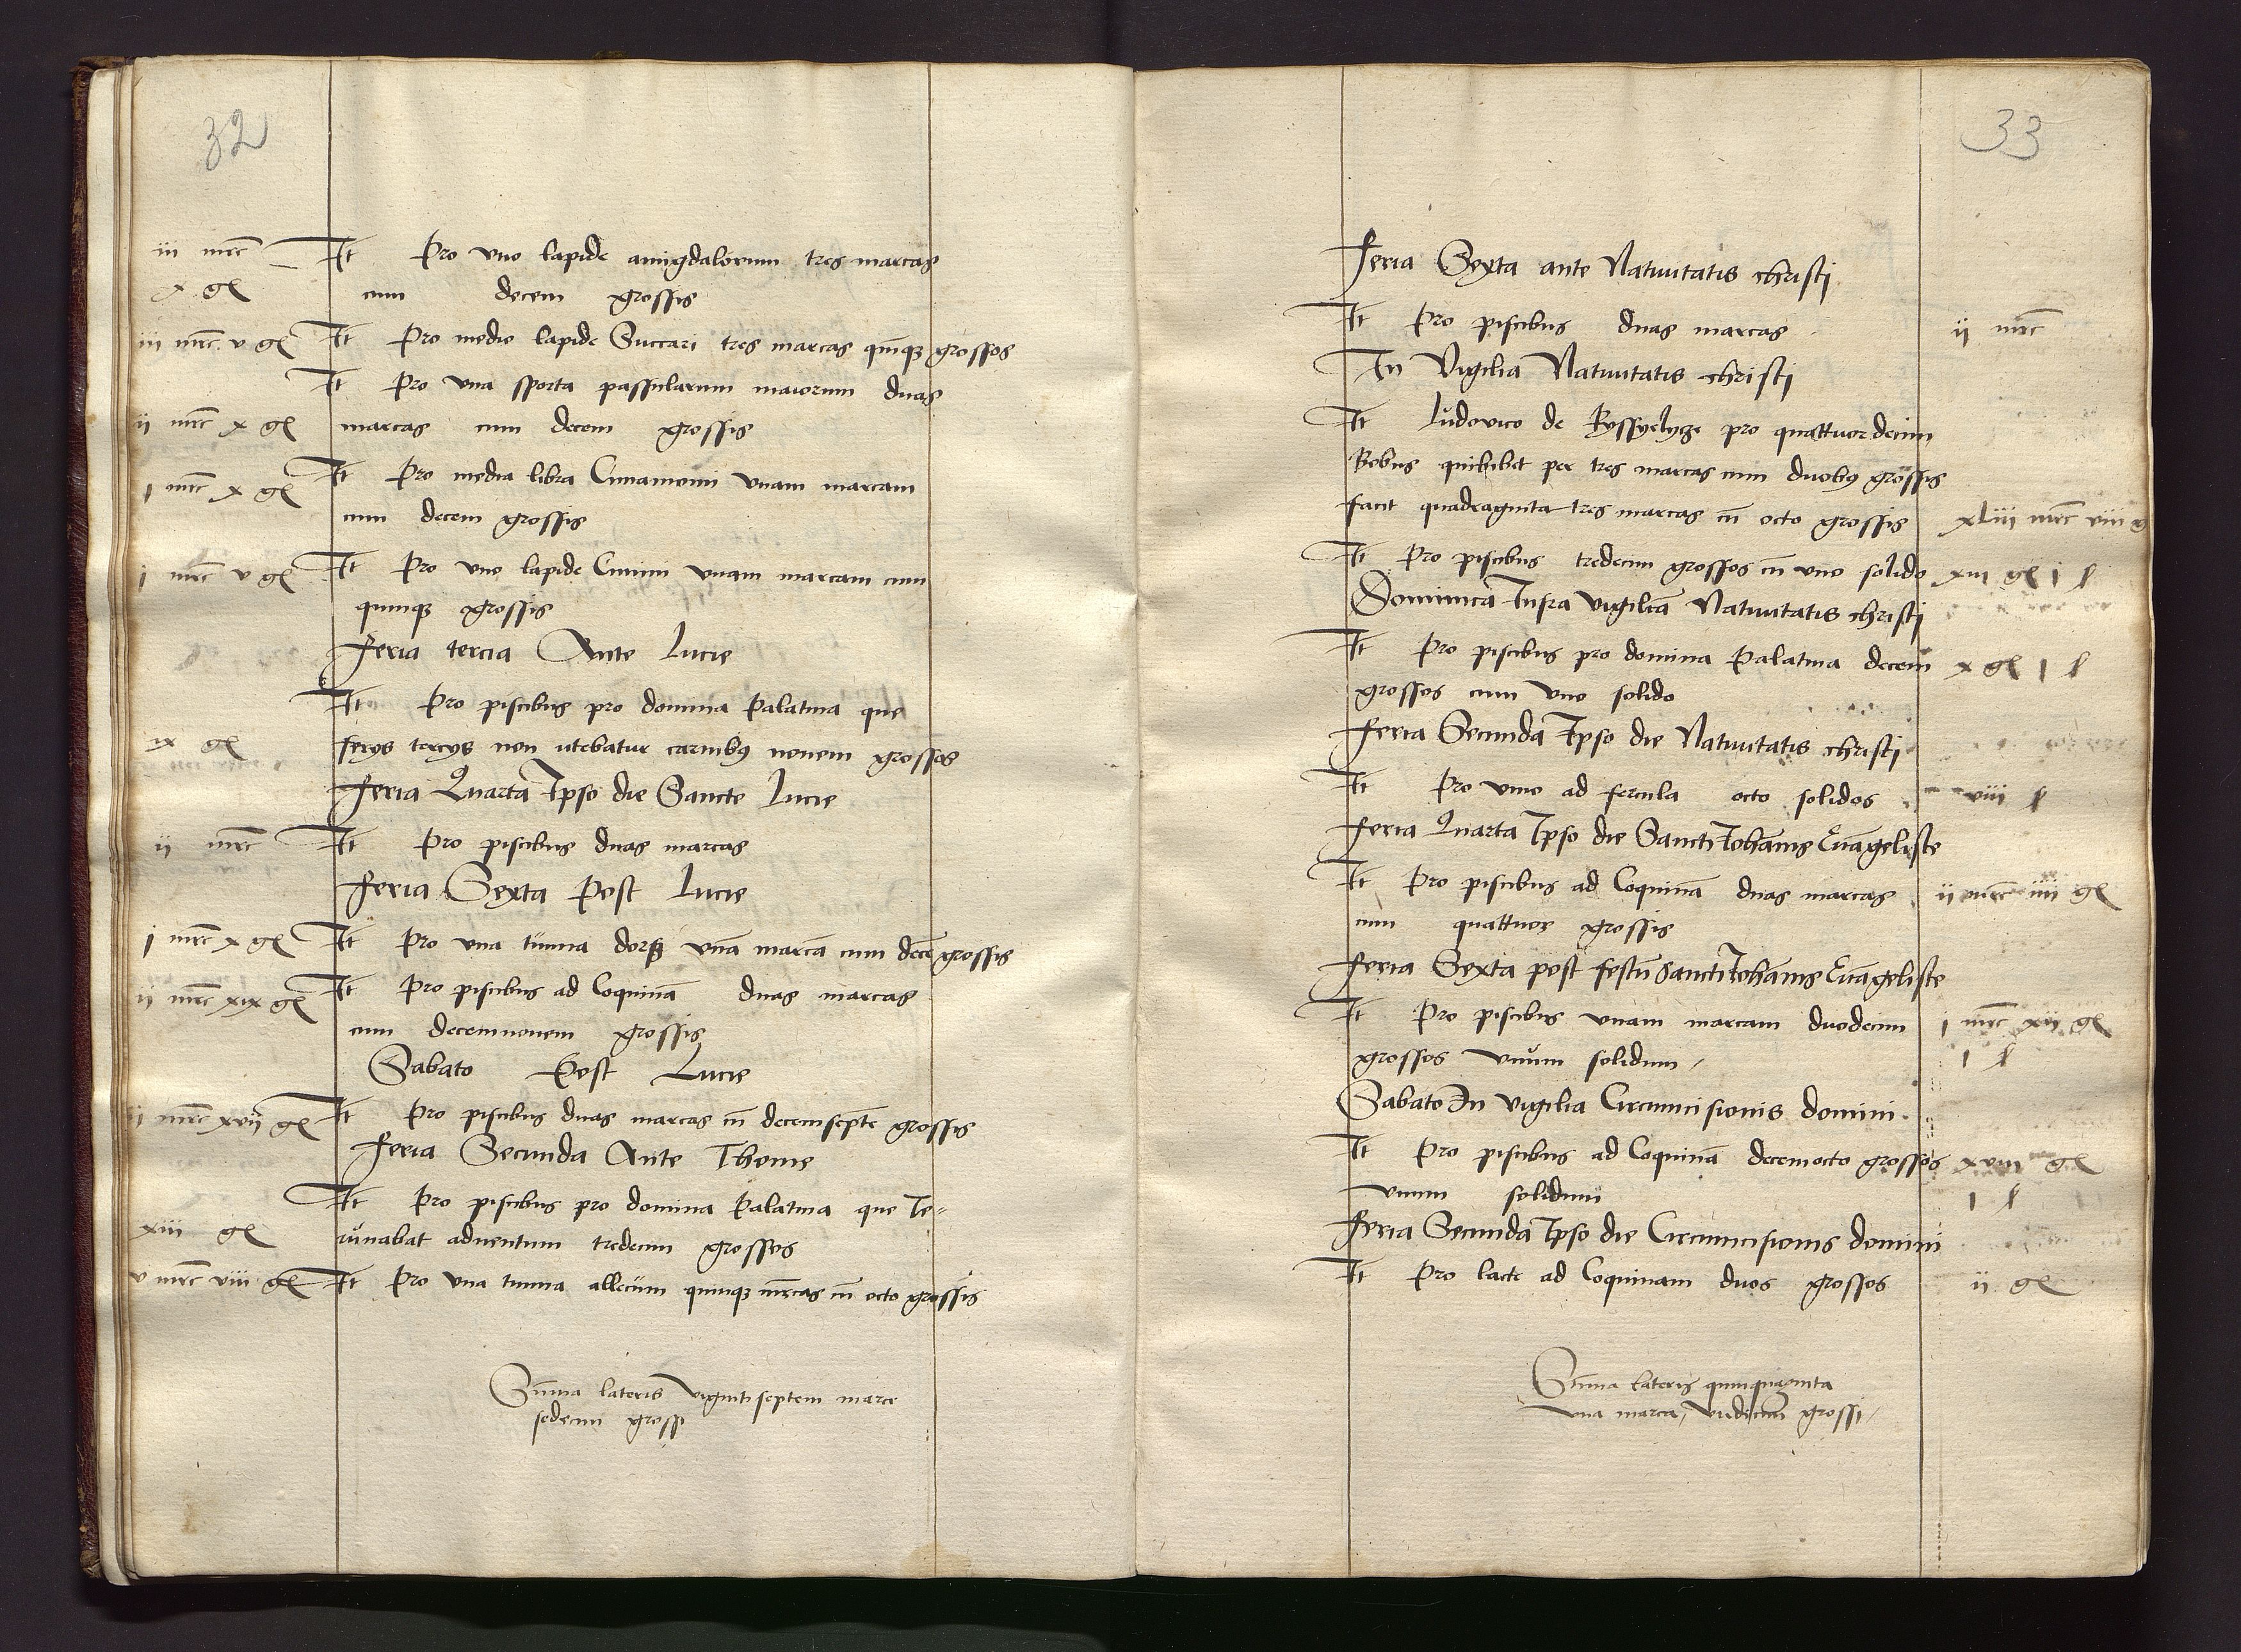 32
iii mrc It Pro vno lapide amigdalorum tres marcas
x gl cum decem grossis
iii mrc v gl It Pro medio lapide Succari tres marcas quinqz grossos
It Pro vna sporta passularum maiorum duas
ii mrc x gl marcas cum decem grossis
j mrc x gl It Pro media libra Cinamomi vnam marcam
cum decem grossis
j mrc v gl It Pro vno lapide Cimini vnam marcam cum
quinqz grossis
Feria tercia Ante Lucie
It Pro piscibus pro domina Palatina que
ix gl ferys tercys non vtebatur carnibus nouem grossos
Feria Quarta Ipso die Sancte Lucie
ij mrc It Pro piscibus duas marcas
Feria Sexta Post Lucie
j mrc x gl It Pro vna tunna dorsz vnā marcā cum decē grossis
ij mrc xix gl It Pro piscibus ad Coquinā duas marcas
cum decemnouem grossis
Sabato Post Lucie
ij mrc xvij gl It Pro piscibus duas marcas cū decemseptē grossis
Feria Secunda Ante Thome
It Pro piscibus pro domina Palatina que Ie=
xiii gl iunabat aduentum tredecim grossos
v mrc viii gl It Pro vna tunna allecum quinqz mrcas cū octo grossis
Sūma lateris viginti septem marce
sedecim grossi
33
Feria Sexta ante Natiuitatis christi
It Pro piscibus duas marcas ij mrc
In Vigilia Natiuitatis christi
It Ludovico de pro quattuordecim
Bobus quilibet per tres marcas cum duobus grossis
facit quadraginta tres marcas cū octo grossis xliii mrc viii g
It Pro piscibus tredecim grossos cū vno solido xiii gl j ſ
Dominica Infra vigiliā Natiuitatis christi
It Pro piscibus pro domina Palatina decem x gl j ſ
grossos cum vno solido
Feria Secunda Ipso die Natiuitatis christi
It Pro vino ad fercula octo solidos viii ſ
Feria Quarta Ipso die Sancti Iohānis Euāgeliste
It Pro piscibus ad Coquinā duas marcas ij mrc iiii gl
cum quattuor grossis
Feria Sexta post festū Sancti Iohānis Euāgeliste
It Pro piscibus vnam marcam duodecim j mrc xij gl
grossos vnum solidum j ſ
Sabato In vigilia Circumcisionis domini
It Pro piscibus ad Coquinā decemocto grossos xviii gl
vnum solidum j ſ
Feria Secunda Ipso die Circumcisionis domini
It Pro lacte ad Coquinam duos grossos ij gl
Sūma lateris quinquaginta
vna marca, vndecim grossi